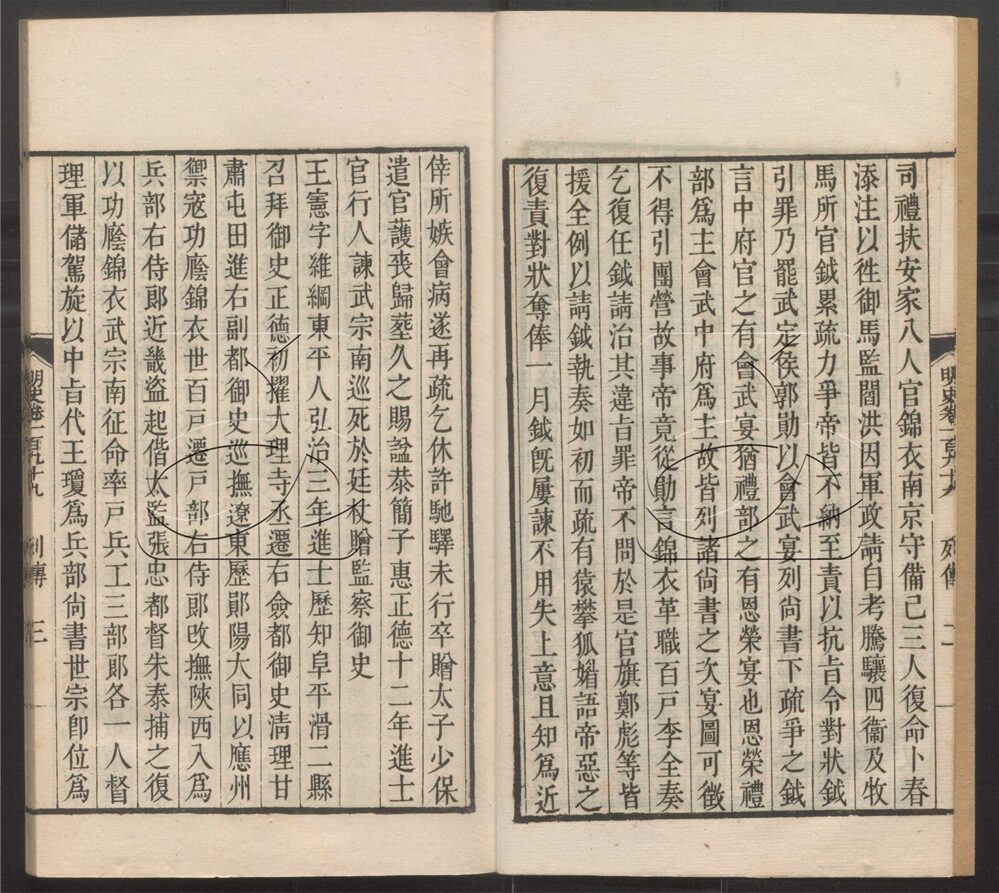 司禮扶安家八人官錦衣南京守備已三人復命卜春
添注以往御馬監閻洪因軍政請自考騰驤四衞及牧
馬所官鉞累疏力爭帝皆不納至責以抗旨令對狀鉞
引罪乃罷武定侯郭勛以會武宴列尚書下疏爭之鉞
言中府官之有會武宴猶禮部之有恩榮宴也恩榮禮
部爲主會武中府爲主故皆列諸尚書之次宴圖可徵
不得引團營故事帝竟從勛言錦衣革職百戸李全奏
乞復任鉞請治其違旨罪帝不問於是官旗鄭彪等皆
援全例以請鉞執奏如初而疏有猿攀狐媚語帝惡之
復責對狀奪俸一月鉞旣屢諫不用失上意且知爲近
明史卷一百九十九
列傳
二
倖所嫉會病遂再疏乞休許馳驛未行卒贈太子少保
遣官護喪歸塟久之賜諡恭簡子惠正德十二年進士
官行人諫武宗南巡死於廷杖贈監察御史
王憲字維綱東平人弘治三年進士歷知阜平滑二縣
召拜御史正德初擢大理寺丞遷右僉都御史淸理甘
肅屯田進右副都御史巡撫遼東歷鄖陽大同以應州
禦寇功廕錦衣世百戸遷戸部右侍郎改撫陝西入爲
兵部右侍郎近畿盜起偕太監張忠都督朱泰捕之復
以功廕錦衣武宗南征命率戸兵工三部郎各一人督
理軍儲駕旋以中旨代王瓊爲兵部尚書世宗卽位爲
明史卷一百九十九
列傳
三